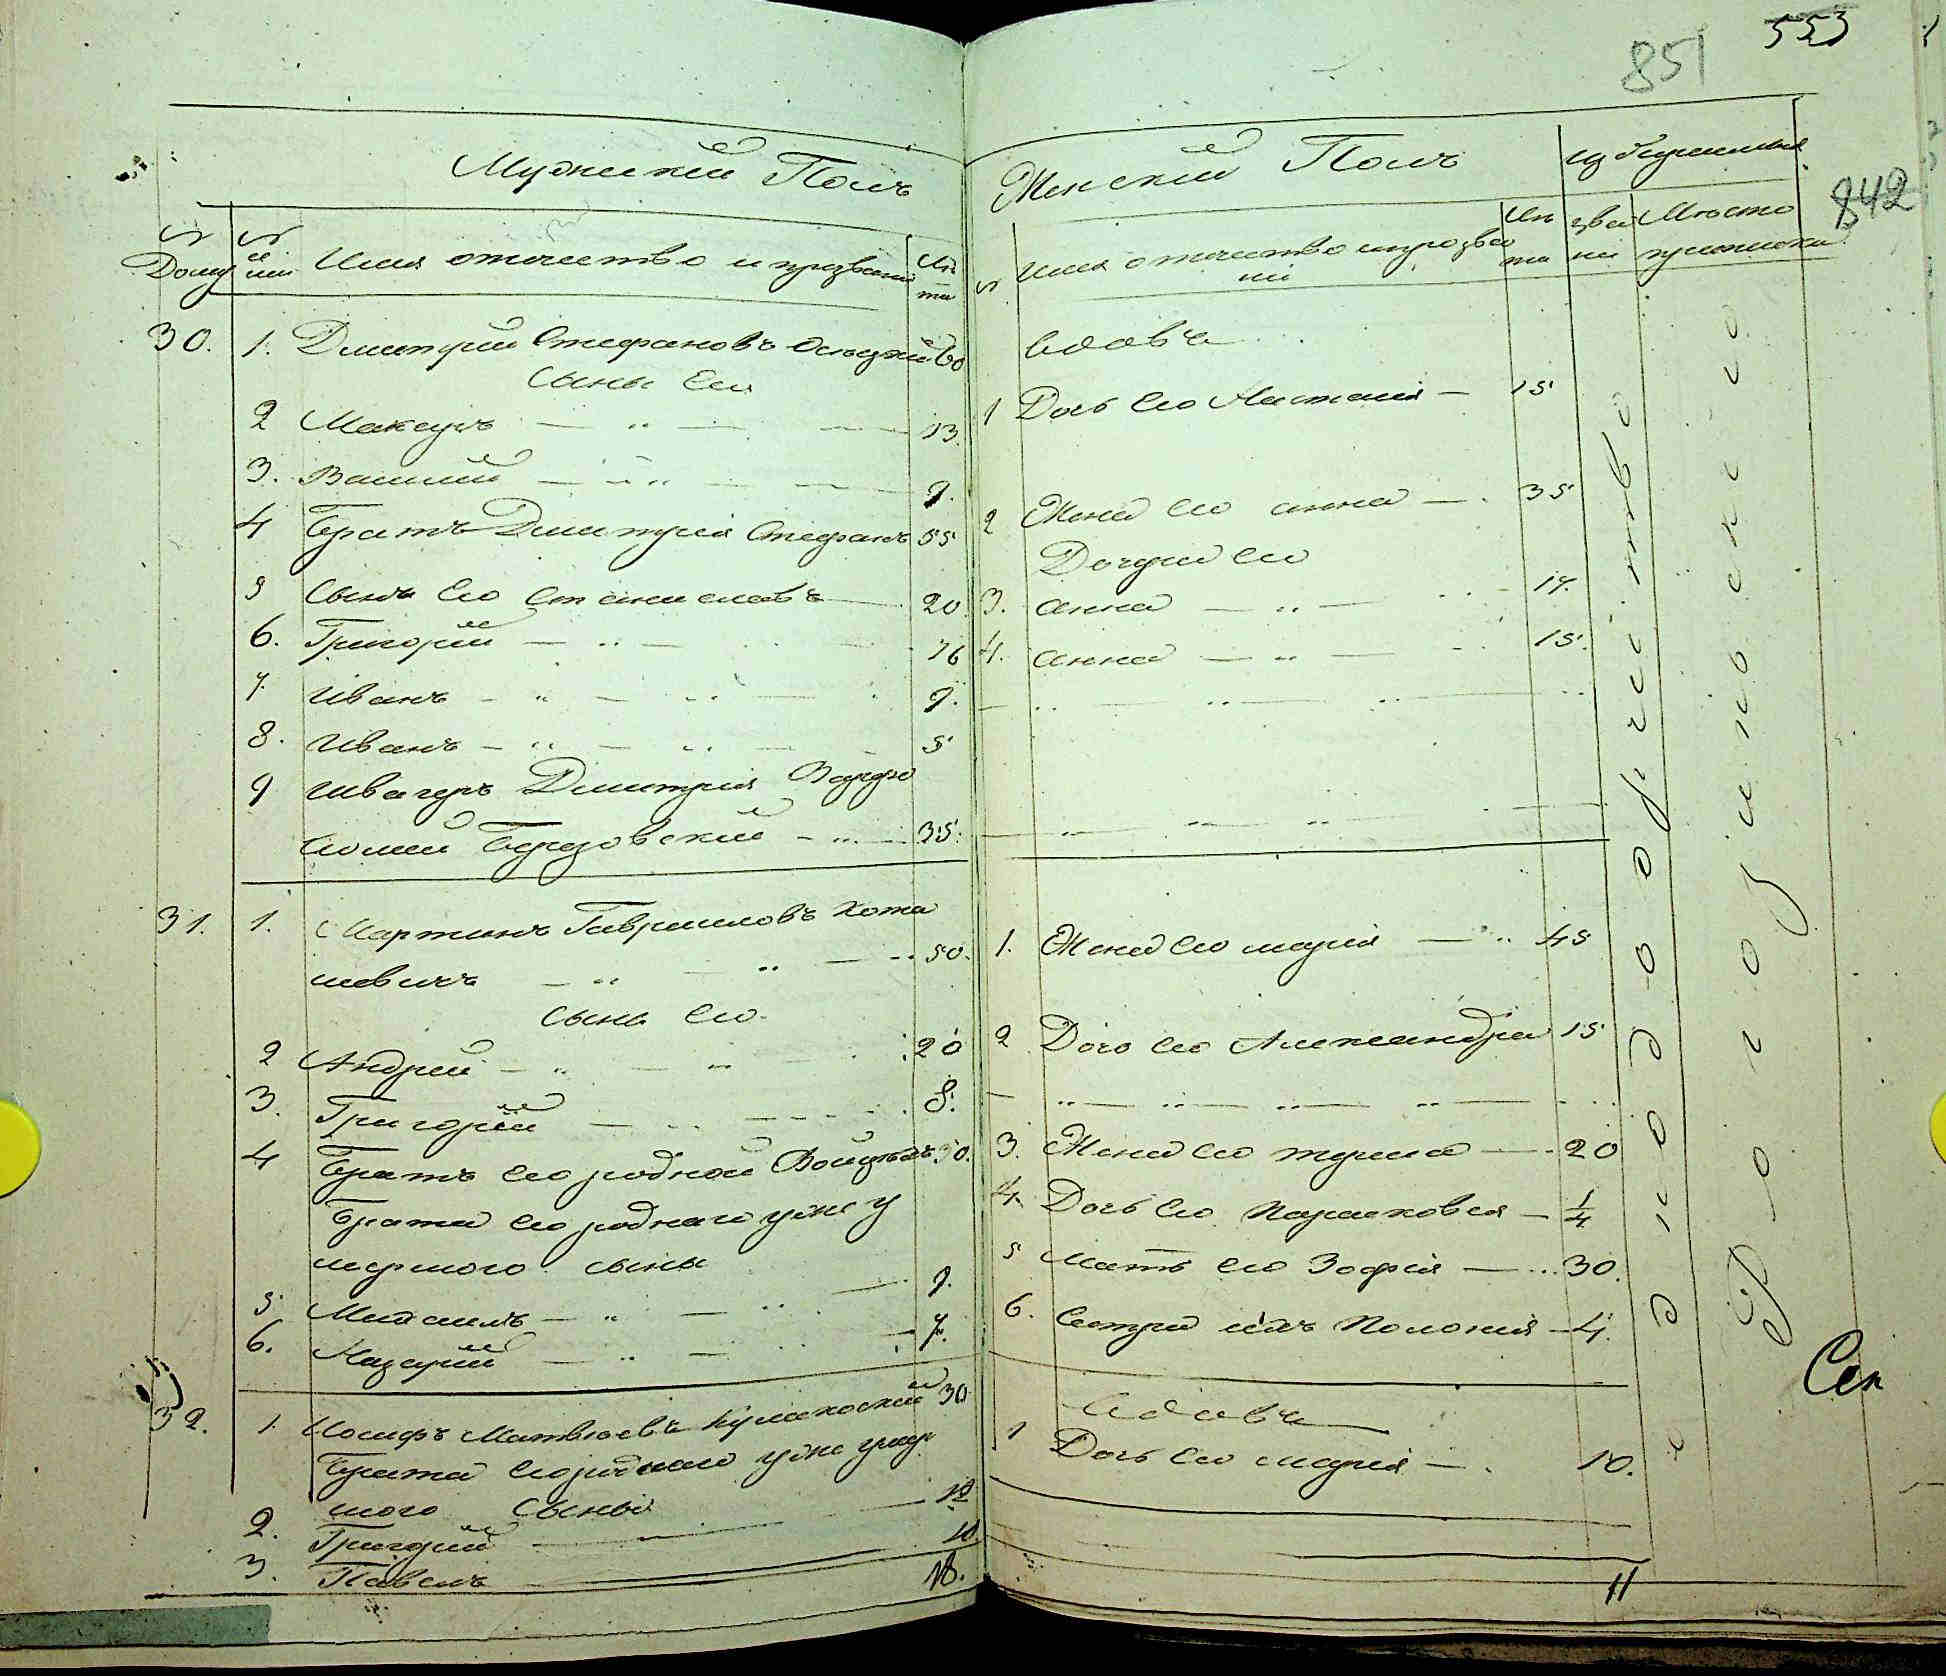 553
851
842
Мужескій Полъ
№ Дому
№ Имя отчество и прозваніе
Лѣта
30. 1. Дмитрій Стефановъ 60
Сыны Его
2 Максимъ 13.
3. Василій 9.
4 Братъ Дмитрія Стефанъ 55
5 Сынъ Его Станиславъ 20
6. Григорій 16
7. Иванъ 9.
8. Иванъ 5
9 Швагеръ Дмитрія Варфо
ломей Березовскій 35.
31. 1. Мартинъ Гавриловъ Хома
шевичъ 50.
Сыны Его
2 Андрей 20
3. Григорій 8.
4 Братъ его родной Войцѣхъ 30.
Брата его роднаго уже у
мершого сыны
5. Михаилъ 9.
6. Назарій 7.
32. 1. Іосифъ Матвѣевъ 30
Брата его роднаго уже умер
шого Сыны
2. Григорій 12
3. Павелъ 10
18.
Женскій Полъ
№ Имя отчество и прозва
ніе
Лѣ
та
зва
ніе
Мѣсто
приписки
Вдовъ
1 Дочь его Настасія 15
2 Жена его анна 35
Дочери его
3. анна 17.
4. анна 15.
1. Жена его марія 45
2 Дочь его Александра 15
3. Жена его 20
4. Дочь его Парасковея 1/4
5 Мать его Зофія 30.
6. Сестра ихъ Полонія 4.
Вдовъ
1 Дочь его марія 10.
11
Сек